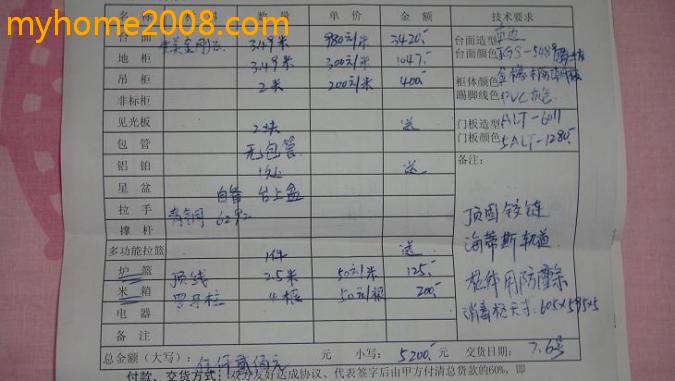 myhome2008.com
名称 数量 单价 金额 技术要求
台面 金刚石 3.49米 980元/米 3420.- 台面造型 单边
地柜 3.49米 300元/米 1047.- 台面颜色 GS-548
吊柜 2米 200元/米 400.- 柜体颜色
非标柜 踢脚线色 PVC
见光板 2块 送 门板造型 ALT-6011
包管 无包管 门板颜色 SALT-1280
铝铂 1处 送 备注：
星盆 自备 台上盆
拉手 青铜 6292 顶固铰链
撑杆 海蒂斯轨道
多功能拉篮 1件 送
炉篮 顶线 2.5米 50元/米 125.- 柜体用防潮
米箱 罗马柱 4根 50元/根 200.- 消毒柜尺寸: 605×595×5
电器
备注
总金额（大写）： 伍仟贰佰元 元 小写： 5200.- 元 交货日期： 7.6号
付款、交货方式：双方友好达成协议、代表签字后由甲方付清总货款的60%，即